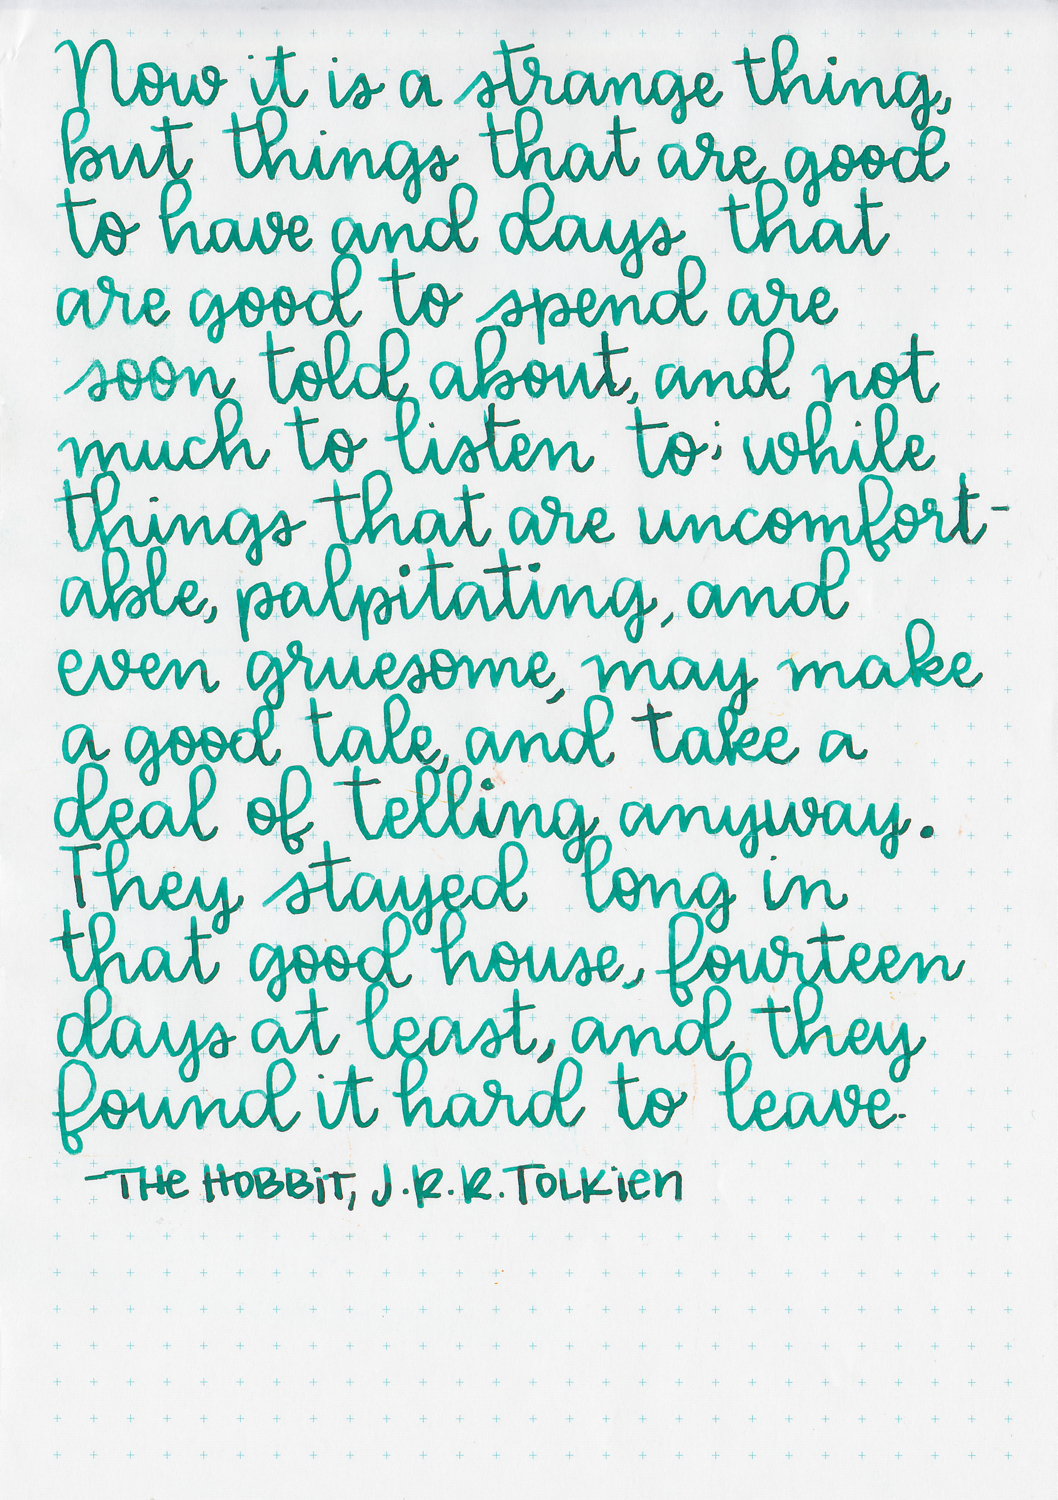 Now it is a strange thing,
but things that are good
to have and days that
are good to spend are
soon told about, and not
much to listen to; while
things that are uncomfort-
able, palpitating, and
even gruesome, may make
a good tale, and take a
deal of telling anyway.
They stayed long in
that good house, fourteen
days at least, and they
found it hard to leave.
-THE HOBBiT, J.R.R.TOLKien